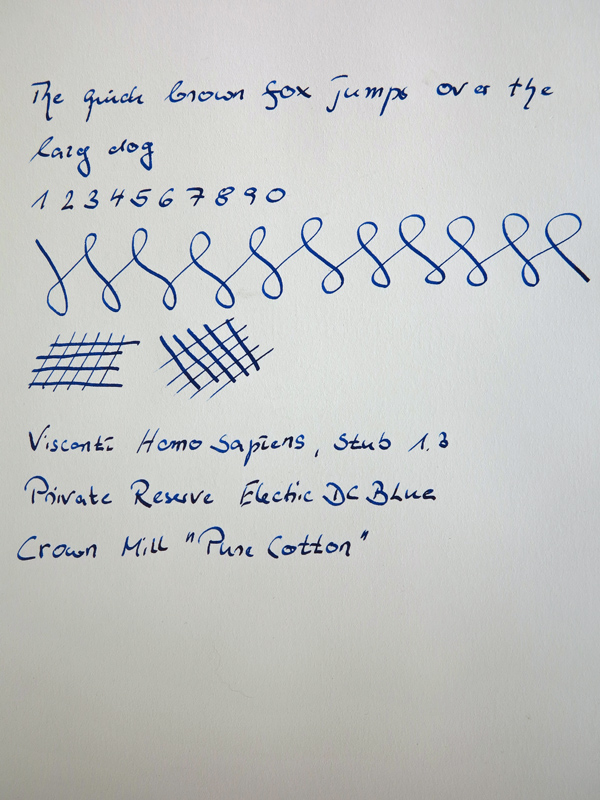 The quick brown fox jumps over the
lazy dog
1 2 3 4 5 6 7 8 9 0
Visconti Homo Sapiens, Stub 1.3
Private Reserve Electric DC Blue
Crown Mill "Pure Cotton"